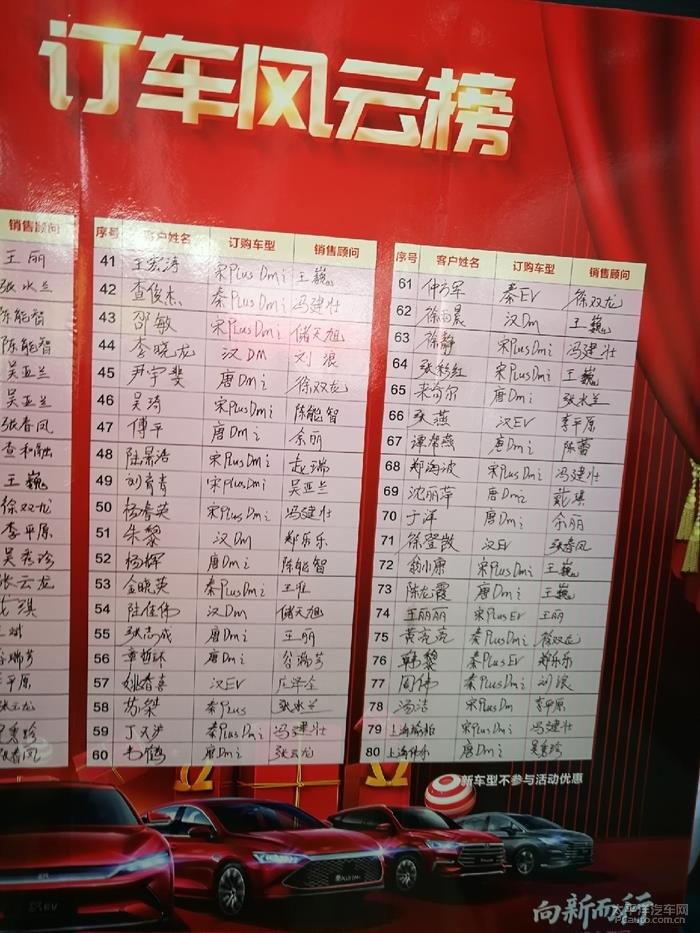 订车风云榜
销售顾问
王丽
张水兰
陈能智
陈能智
吴亚兰
吴亚兰
张春风
查和融
王巍
徐双龙
李平原
吴秀珍
张云龙
序号 客户姓名 订购车型 销售顾问
41 王宏涛 宋Plus Dmi 王巍
42 查俊杰 秦Plus Dmi 冯建壮
43 邵敏 宋PlusDmi 储天旭
44 李晓龙 汉DM 刘浪
45 尹宇斐 唐Dmi 徐双龙
46 吴琦 宋PlusDmi 陈能智
47 傅平 唐Dmi 余丽
48 陆景浩 宋PlusDmi 赵瑞
49 刘育青 宋PlusDmi 吴亚兰
50 杨春英 宋PlusDmi 冯建壮
51 朱黎 汉Dm 郑乐乐
52 杨辉 唐Dmi 陈能智
53 金晓英 秦PlusDmi 王
54 陆佳伟 汉DM 储天旭
55 张志成 唐Dmi 王丽
56 章哲环 唐Dmi 谷瑞芳
57 姚春喜 汉EV
58 苏杰 秦Plus 张水兰
59 秦PlusDmi 冯建壮
60 鹤 唐Dmi 张云龙
序号 客户姓名 订购车型 销售顾问
61 仲军 秦EV 徐双龙
62 徐晨 汉Dm 王巍
63 徐静 宋PlusDmi 冯建壮
64 张彩红 宋PlusDmi 王巍
65 唐Dmi 张水兰
66 张燕 汉EV 李平原
67 谭燕 唐Dmi 陈蕾
68 郑海波 宋PlusDmi 冯建壮
69 沈丽萍 唐Dmi 戴琪
70 于洋 唐Dmi 余丽
71 徐登散 汉EV 张春风
72 翁小康 宋PlusDmi 王巍
73 陈龙霞 唐Dmi 王巍
74 王丽丽 宋PlusEV 王丽
75 黄亮亮 秦PlusDmi 徐双龙
76 韩黎 秦PlusEV 郑乐乐
77 周伟 秦PlusDmi 刘浪
78 冯洁 宋PlusDm 李平原
79 上海 宋PlusDmi 冯建壮
80 上海 唐Dmi 吴秀珍
新车型不参与活动优惠
向新而行
太平洋汽车网
PCauto.com.cn